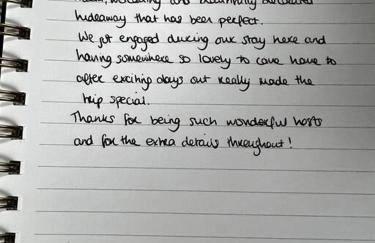 and beautifully decorated
hideaway that has been perfect.
We got engaged during our stay here and
having somewhere so lovely to come home to
after exciting days out really made the
trip special.
Thanks for being such wonderful hosts
and for the extra details throughout!